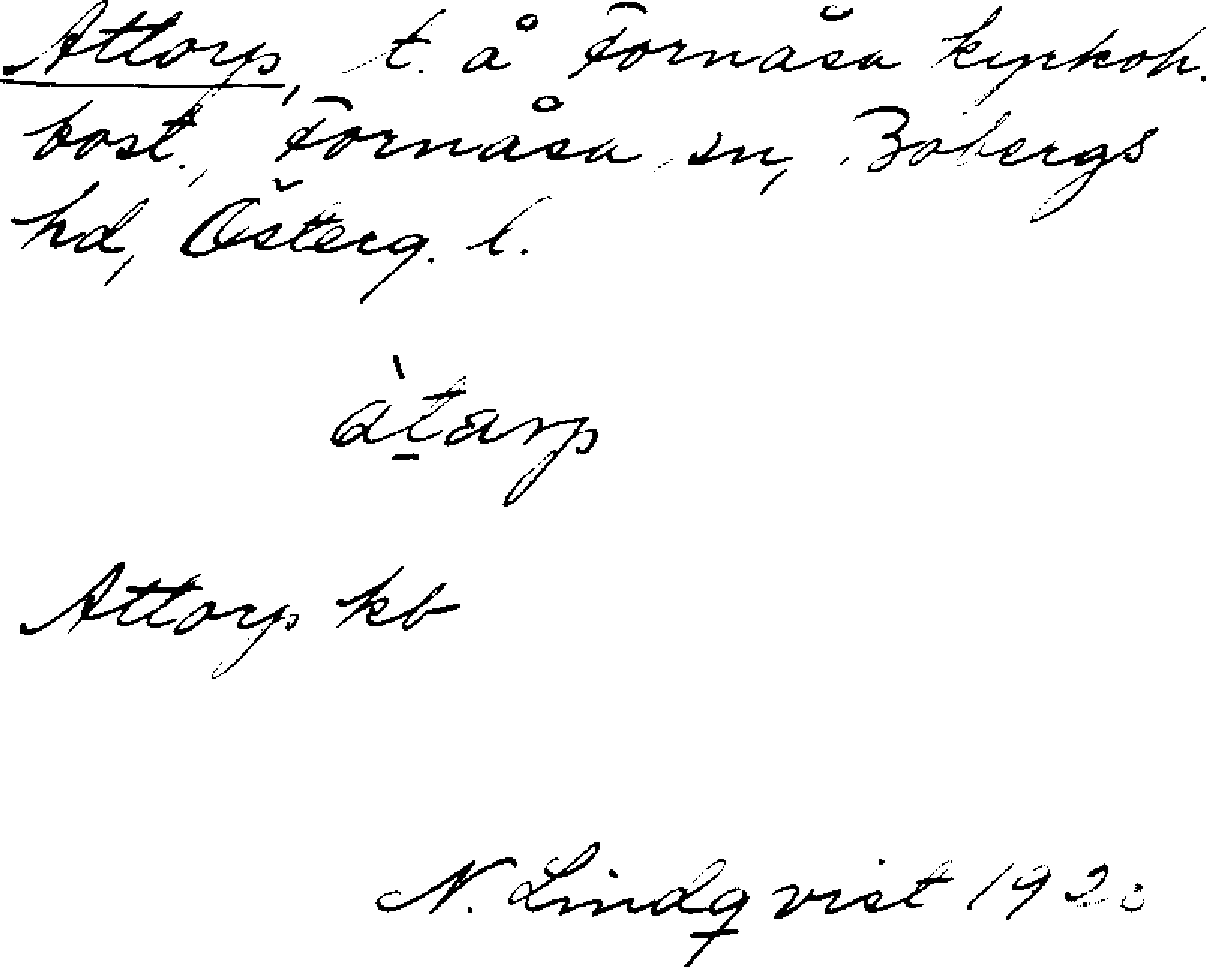 Attorp, t. å Fornåsa kyrkoh.
bost., Fornåsa sn, Bobergs
hd, Österg. l.
àt̠arp
Attorp kb
N. Lindqvist